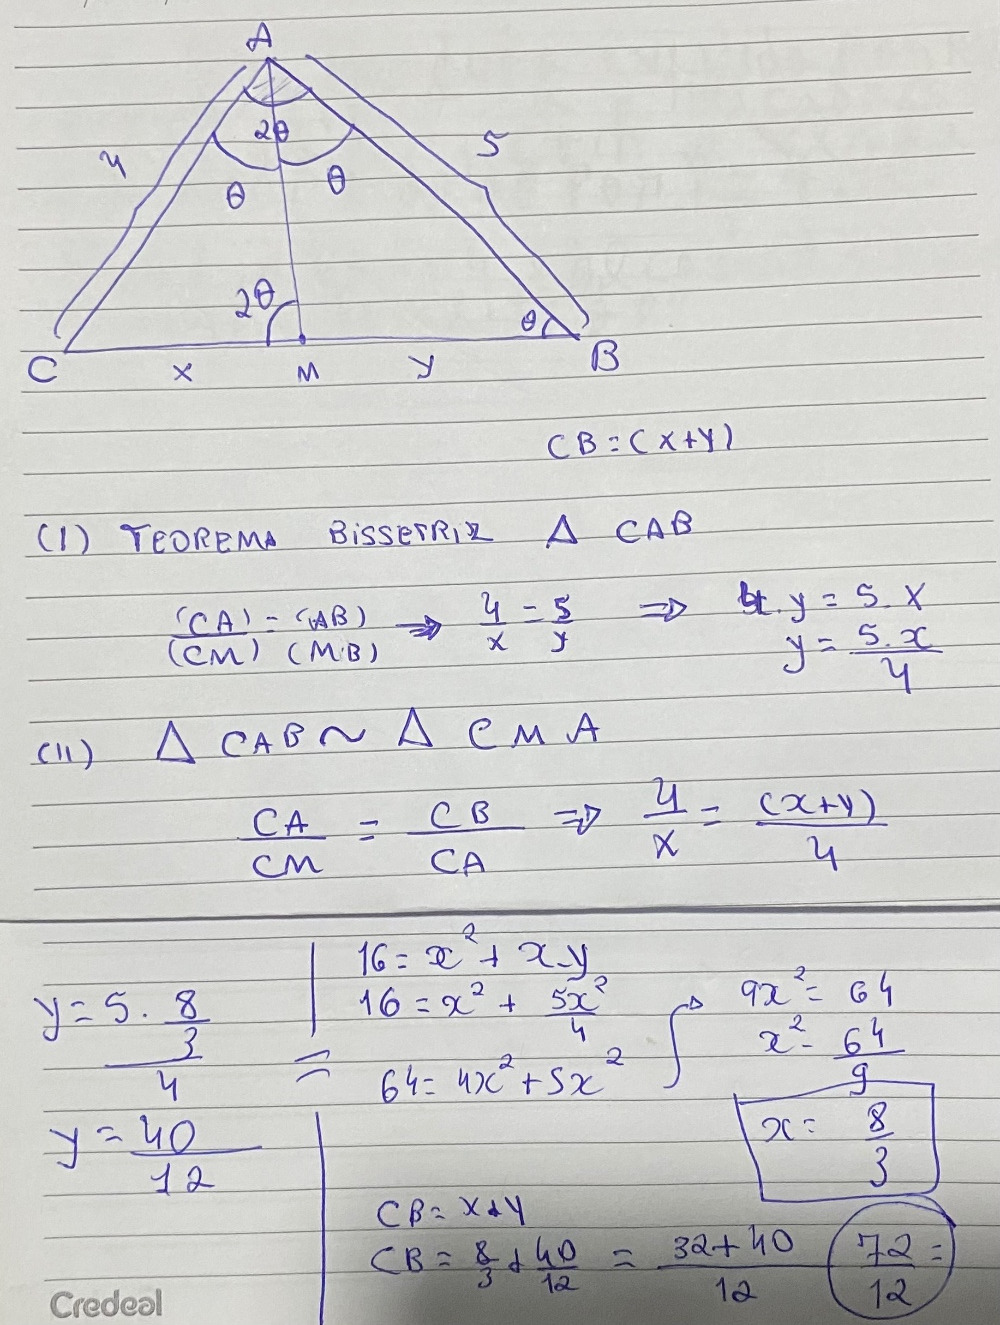 A
4
5
2θ
θ θ
2θ
θ
C x M y B
CB = (x+y)
(I) TEOREMA BISSETRIZ Δ CAB
(CA)/(CM) = (AB)/(MB) ⇒ 4/x = 5/y ⇒ 4.y = 5.x
y = 5.x/4
(II) Δ CAB ~ Δ CMA
CA/CM = CB/CA ⇒ 4/x = (x+y)/4
16 = x² + x.y
16 = x² + 5x²/4
64 = 4x² + 5x²
9x² = 64
x² = 64/9
x = 8/3
y = 5.8/3/4 =
y = 40/12
CB = x+y
CB = 8/3 + 40/12 = 32+40/12 72/12 =
Credeal